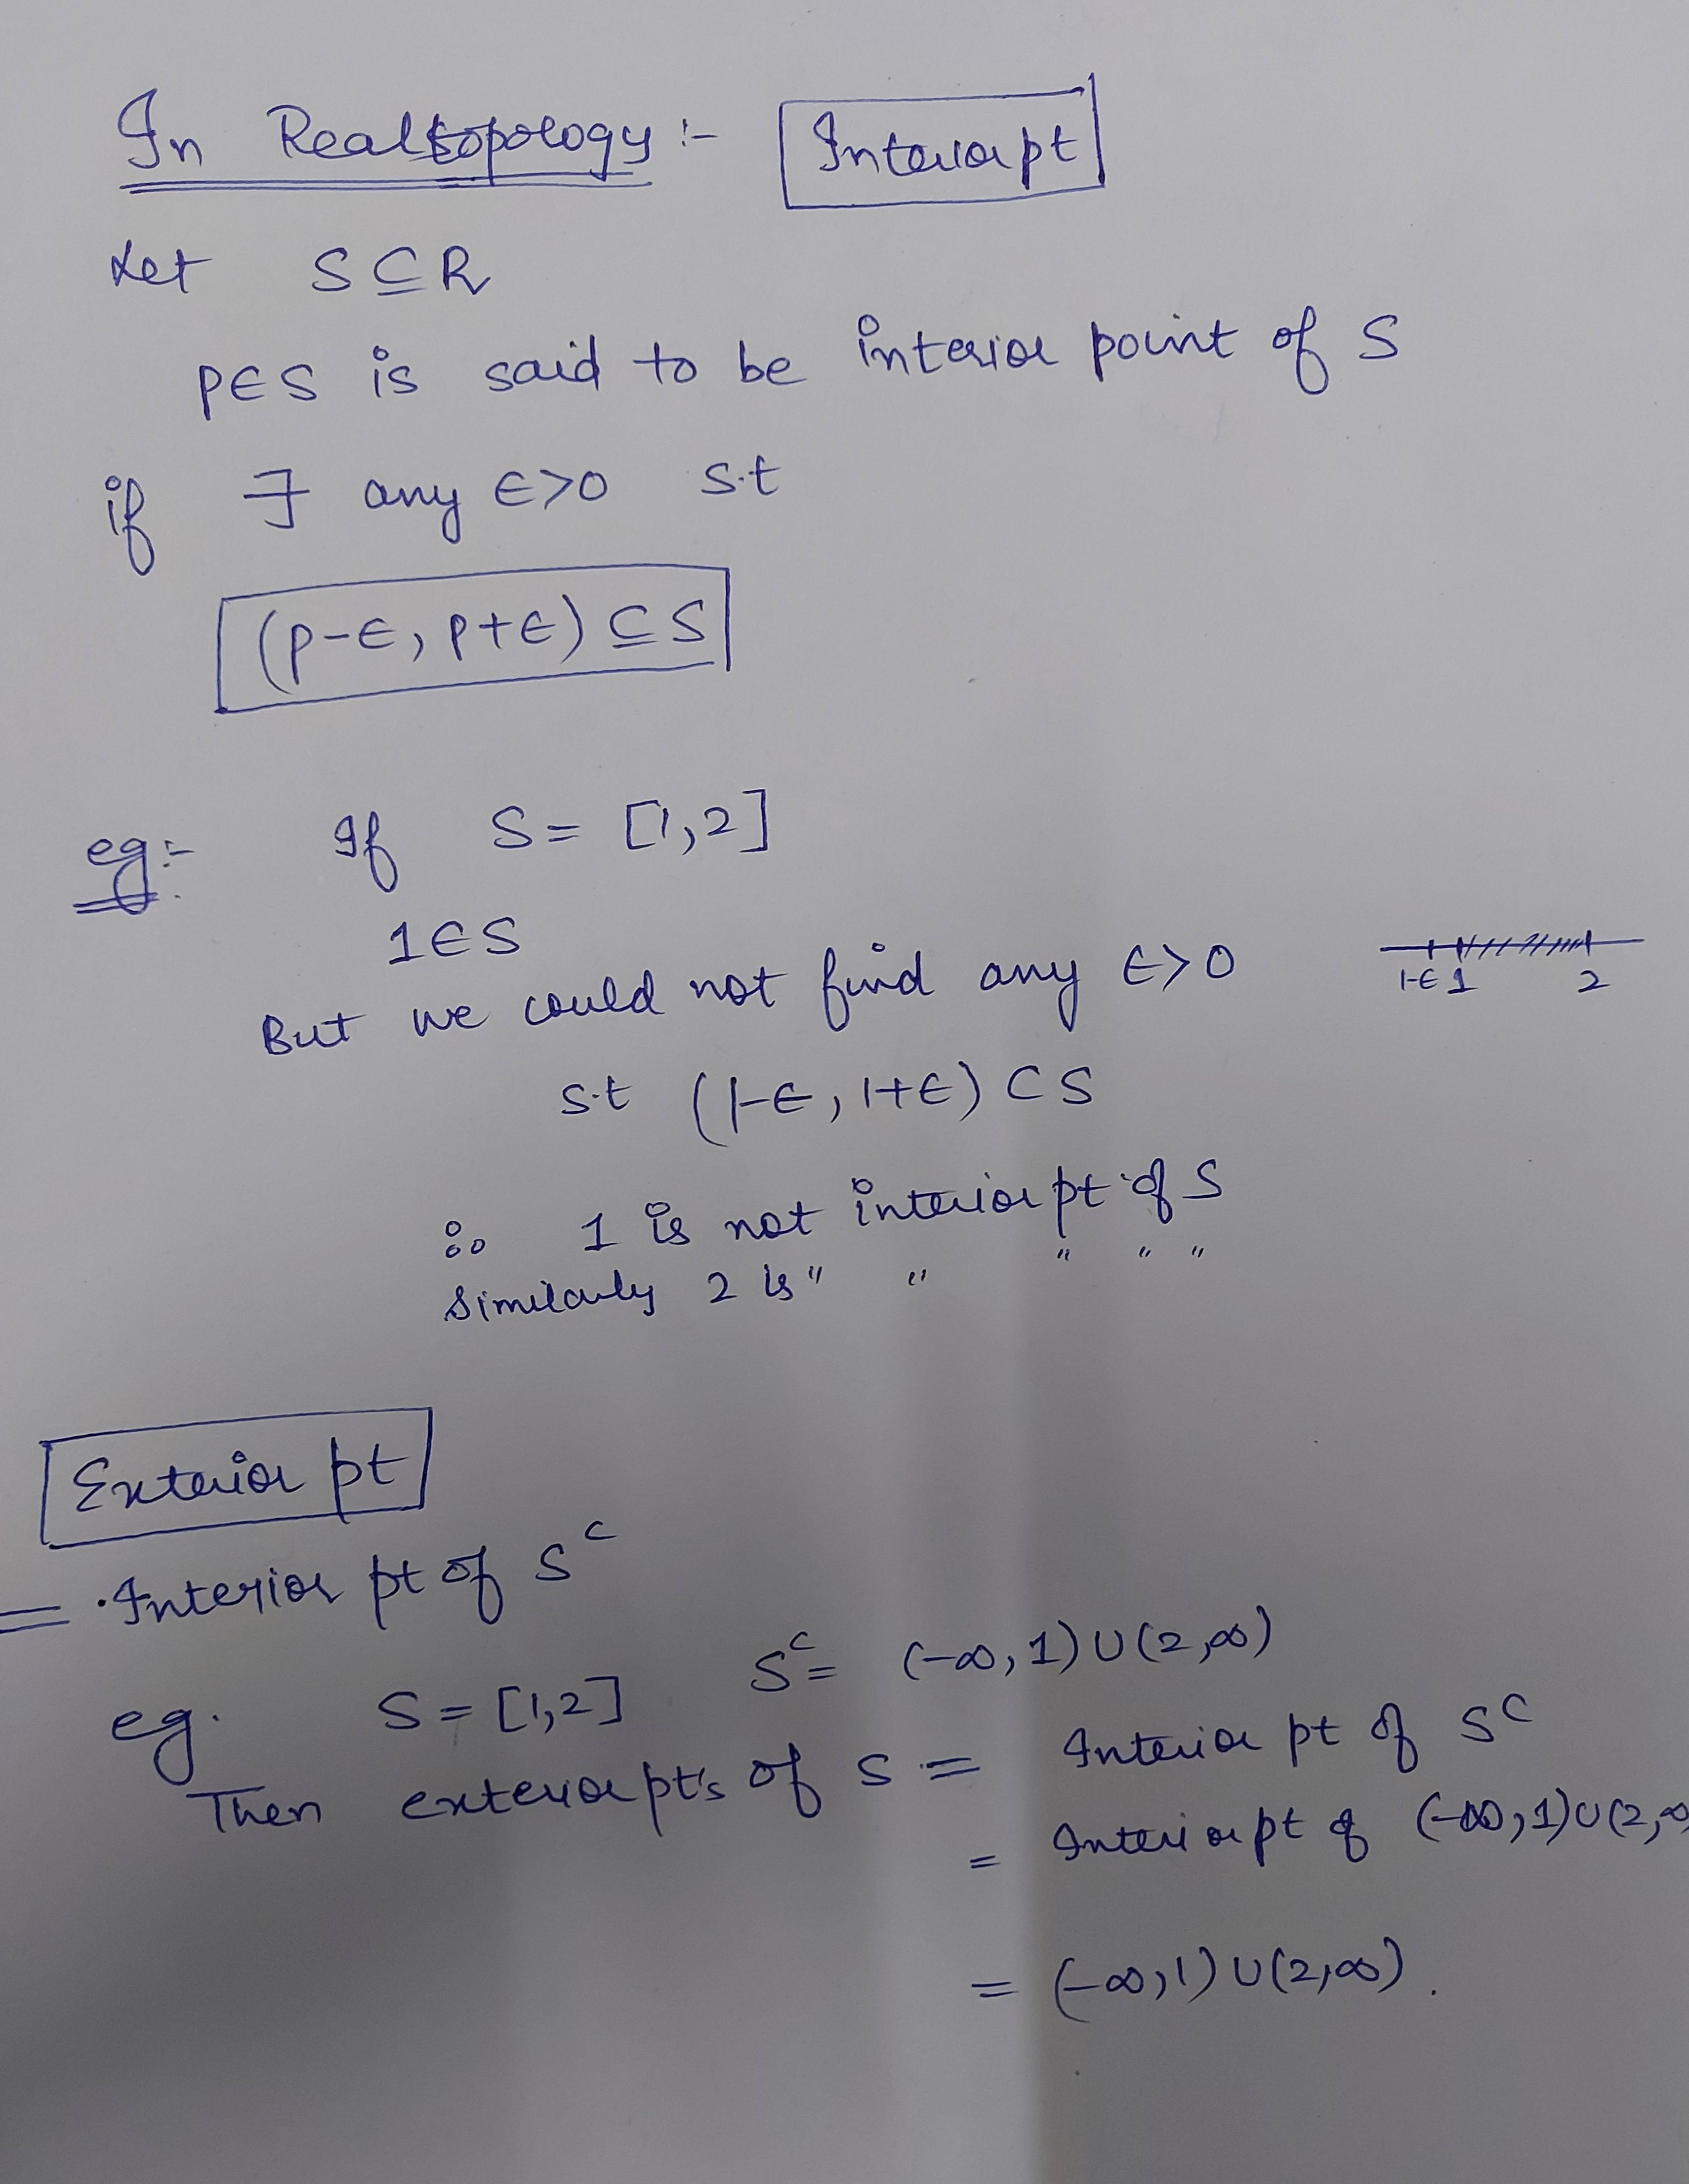 In Real topology :- Interior pt
Let S ⊆ R
p∈S is said to be interior point of S
if ∃ any ∈>0 s.t
(p-∈, p+∈) ⊆ S
eg:- If S = [1,2]
1∈S
But we could not find any ∈>0
1-∈ 1 2
s.t (1-∈, 1+∈) ⊂ S
∴ 1 is not interior pt of S
Similarly 2 is " " " " "
Exterior pt
= ·Interior pt of S^c
eg. S = [1,2] S^c = (-∞, 1) ∪ (2,∞)
Then exterior pt's of S = Interior pt of S^c
= Interior pt of (-∞, 1)∪(2,∞
= (-∞,1) ∪ (2,∞).